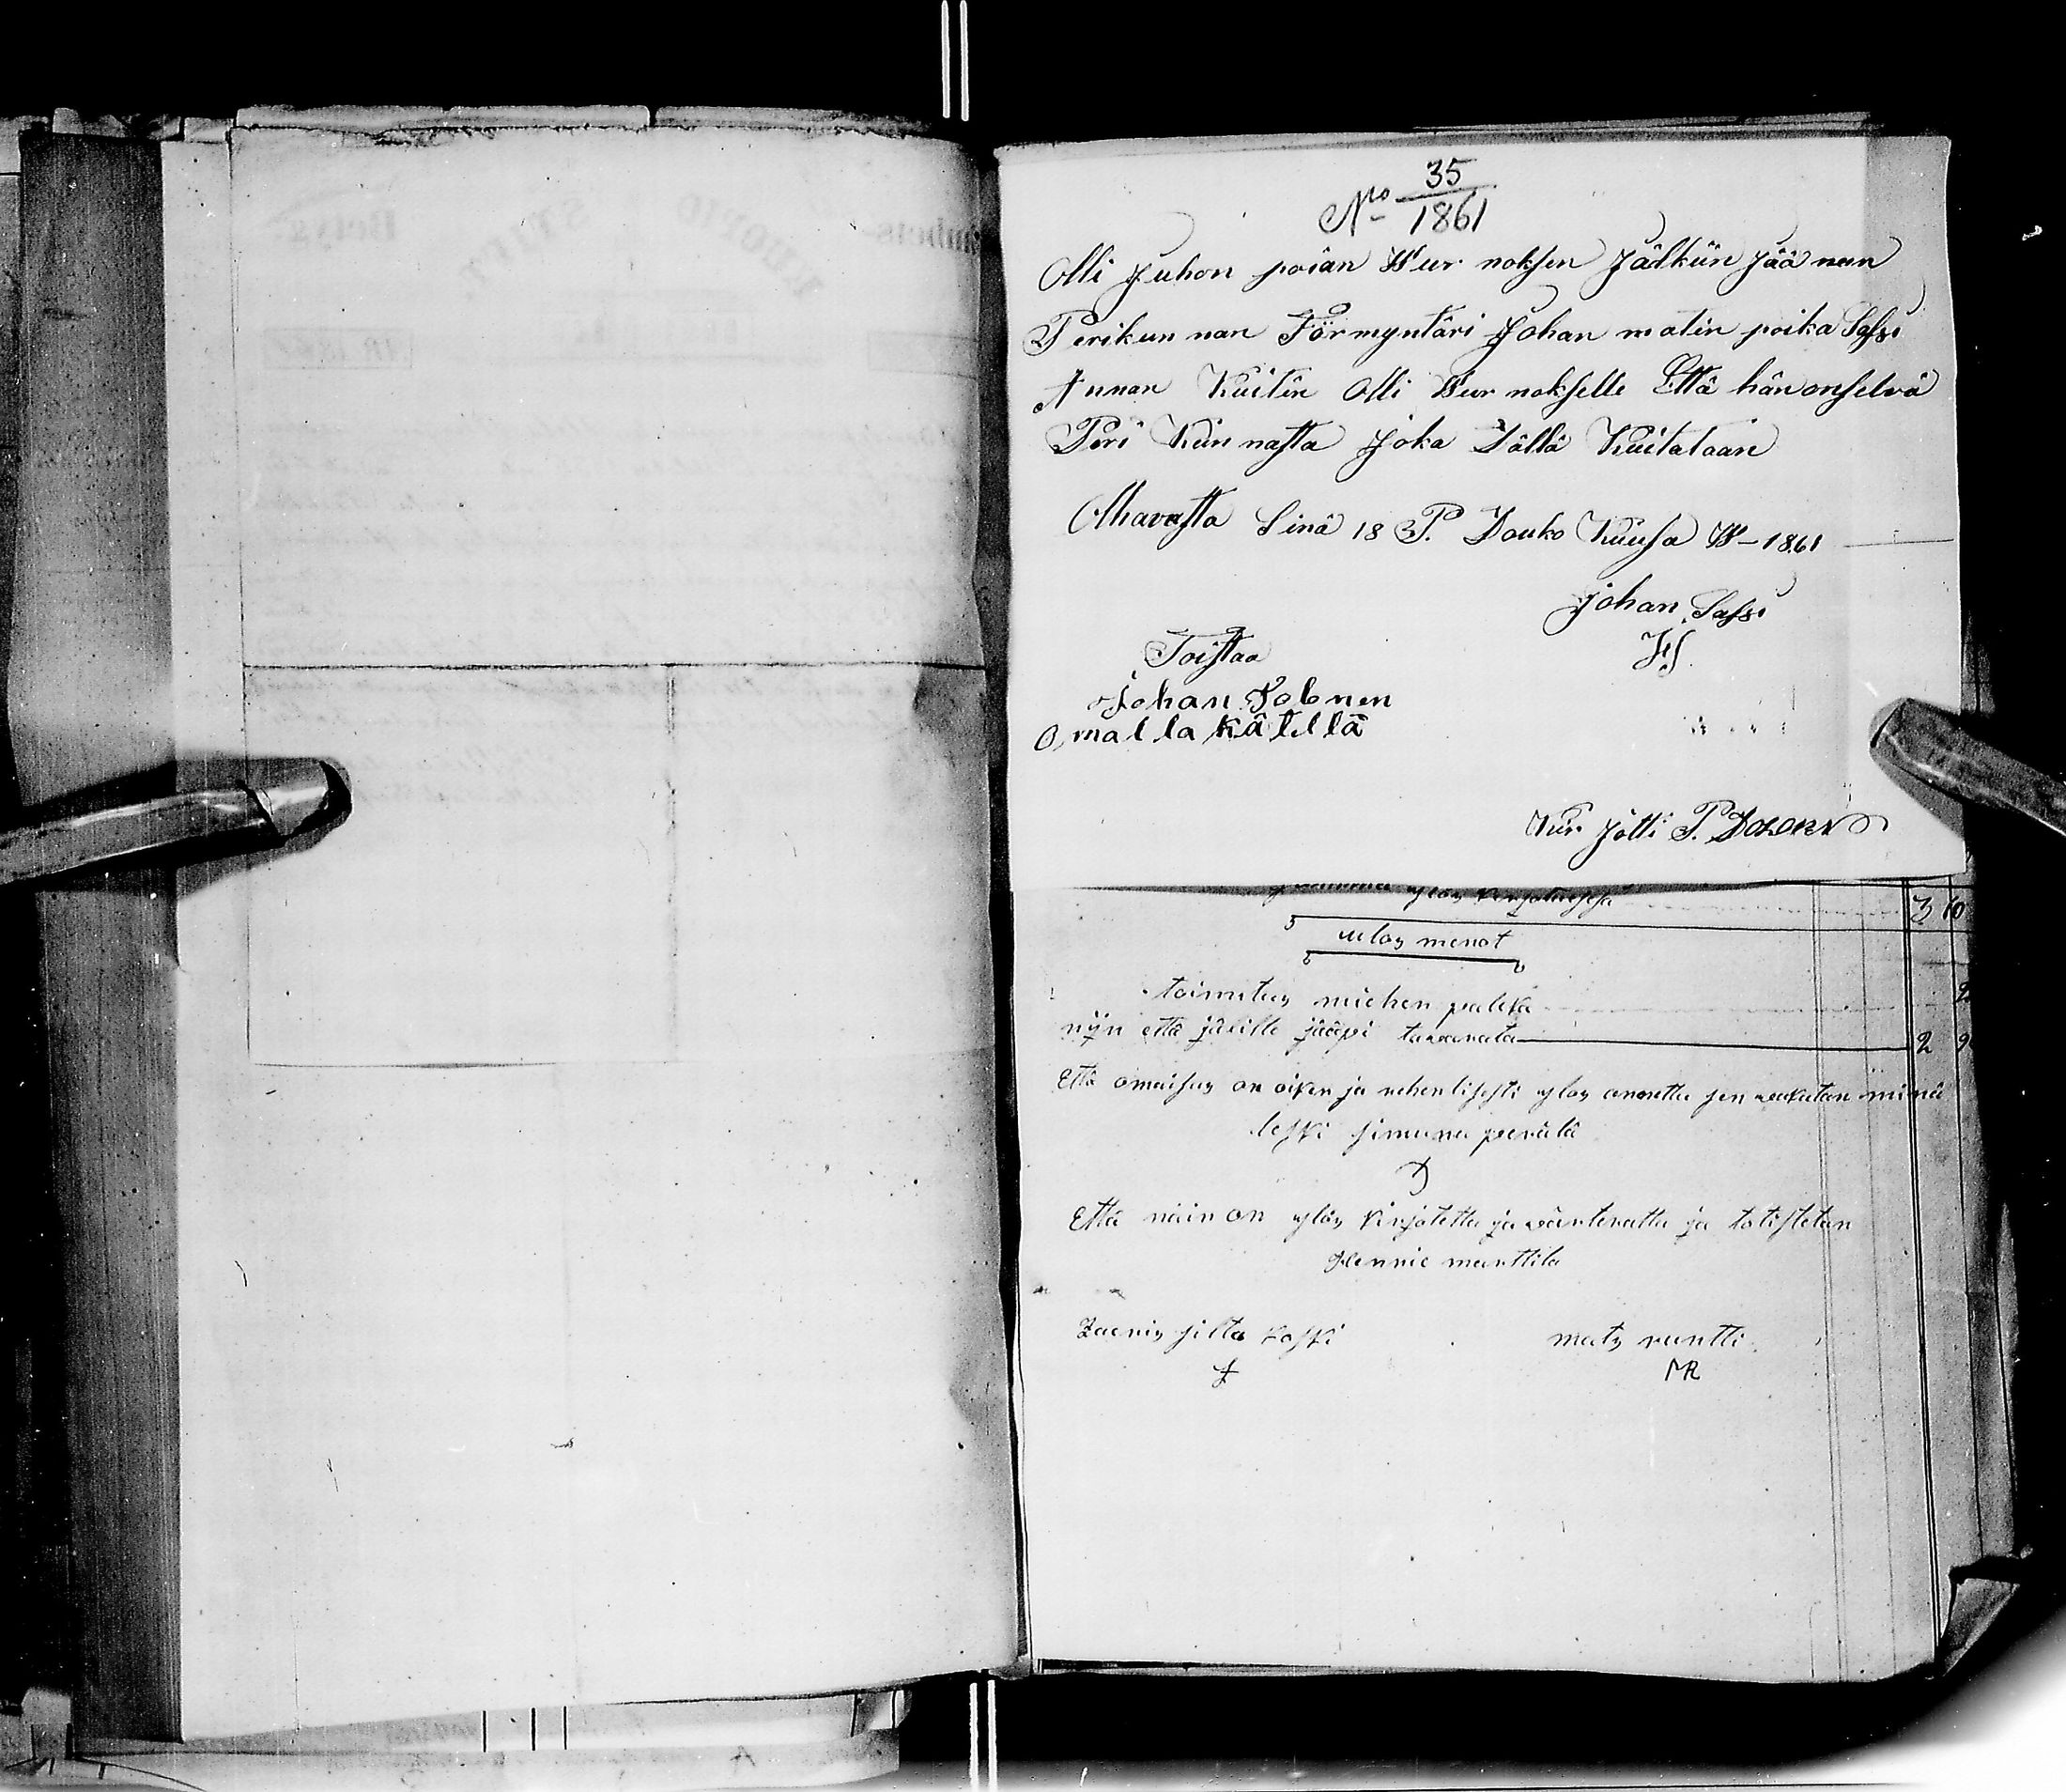 No 35
1861
Olli Juhon poian Wur noksen Jälkiin Jää neen
Perikun nan Förmyntäri Johan matin poika Sassi
Annan Kuitin Olli Wur nokselle Että hän on selvä
Peri Kun nasta Joka Tällä Kuitataan
Alhavasta Sinä 18 P. Touko Kuusa W- 1861
Johan Sassi
JS
Toistaa
Johan
Omalla kätellä
Kir Jötti P.
ylös kirjotuksesa 3 10
uulos menot
toimitus miehen palka 2
nijn että jälille jääpi tavarata 2 9
Että omaisus on oiken ja rehenlisesti ylos annettu sen vakutan minä
leski simuna perälä
Että näin on ylös kirjotettu ja värteerattu ja totistetan
Hennic manttila
Zacris silta koski mats runtti
MR